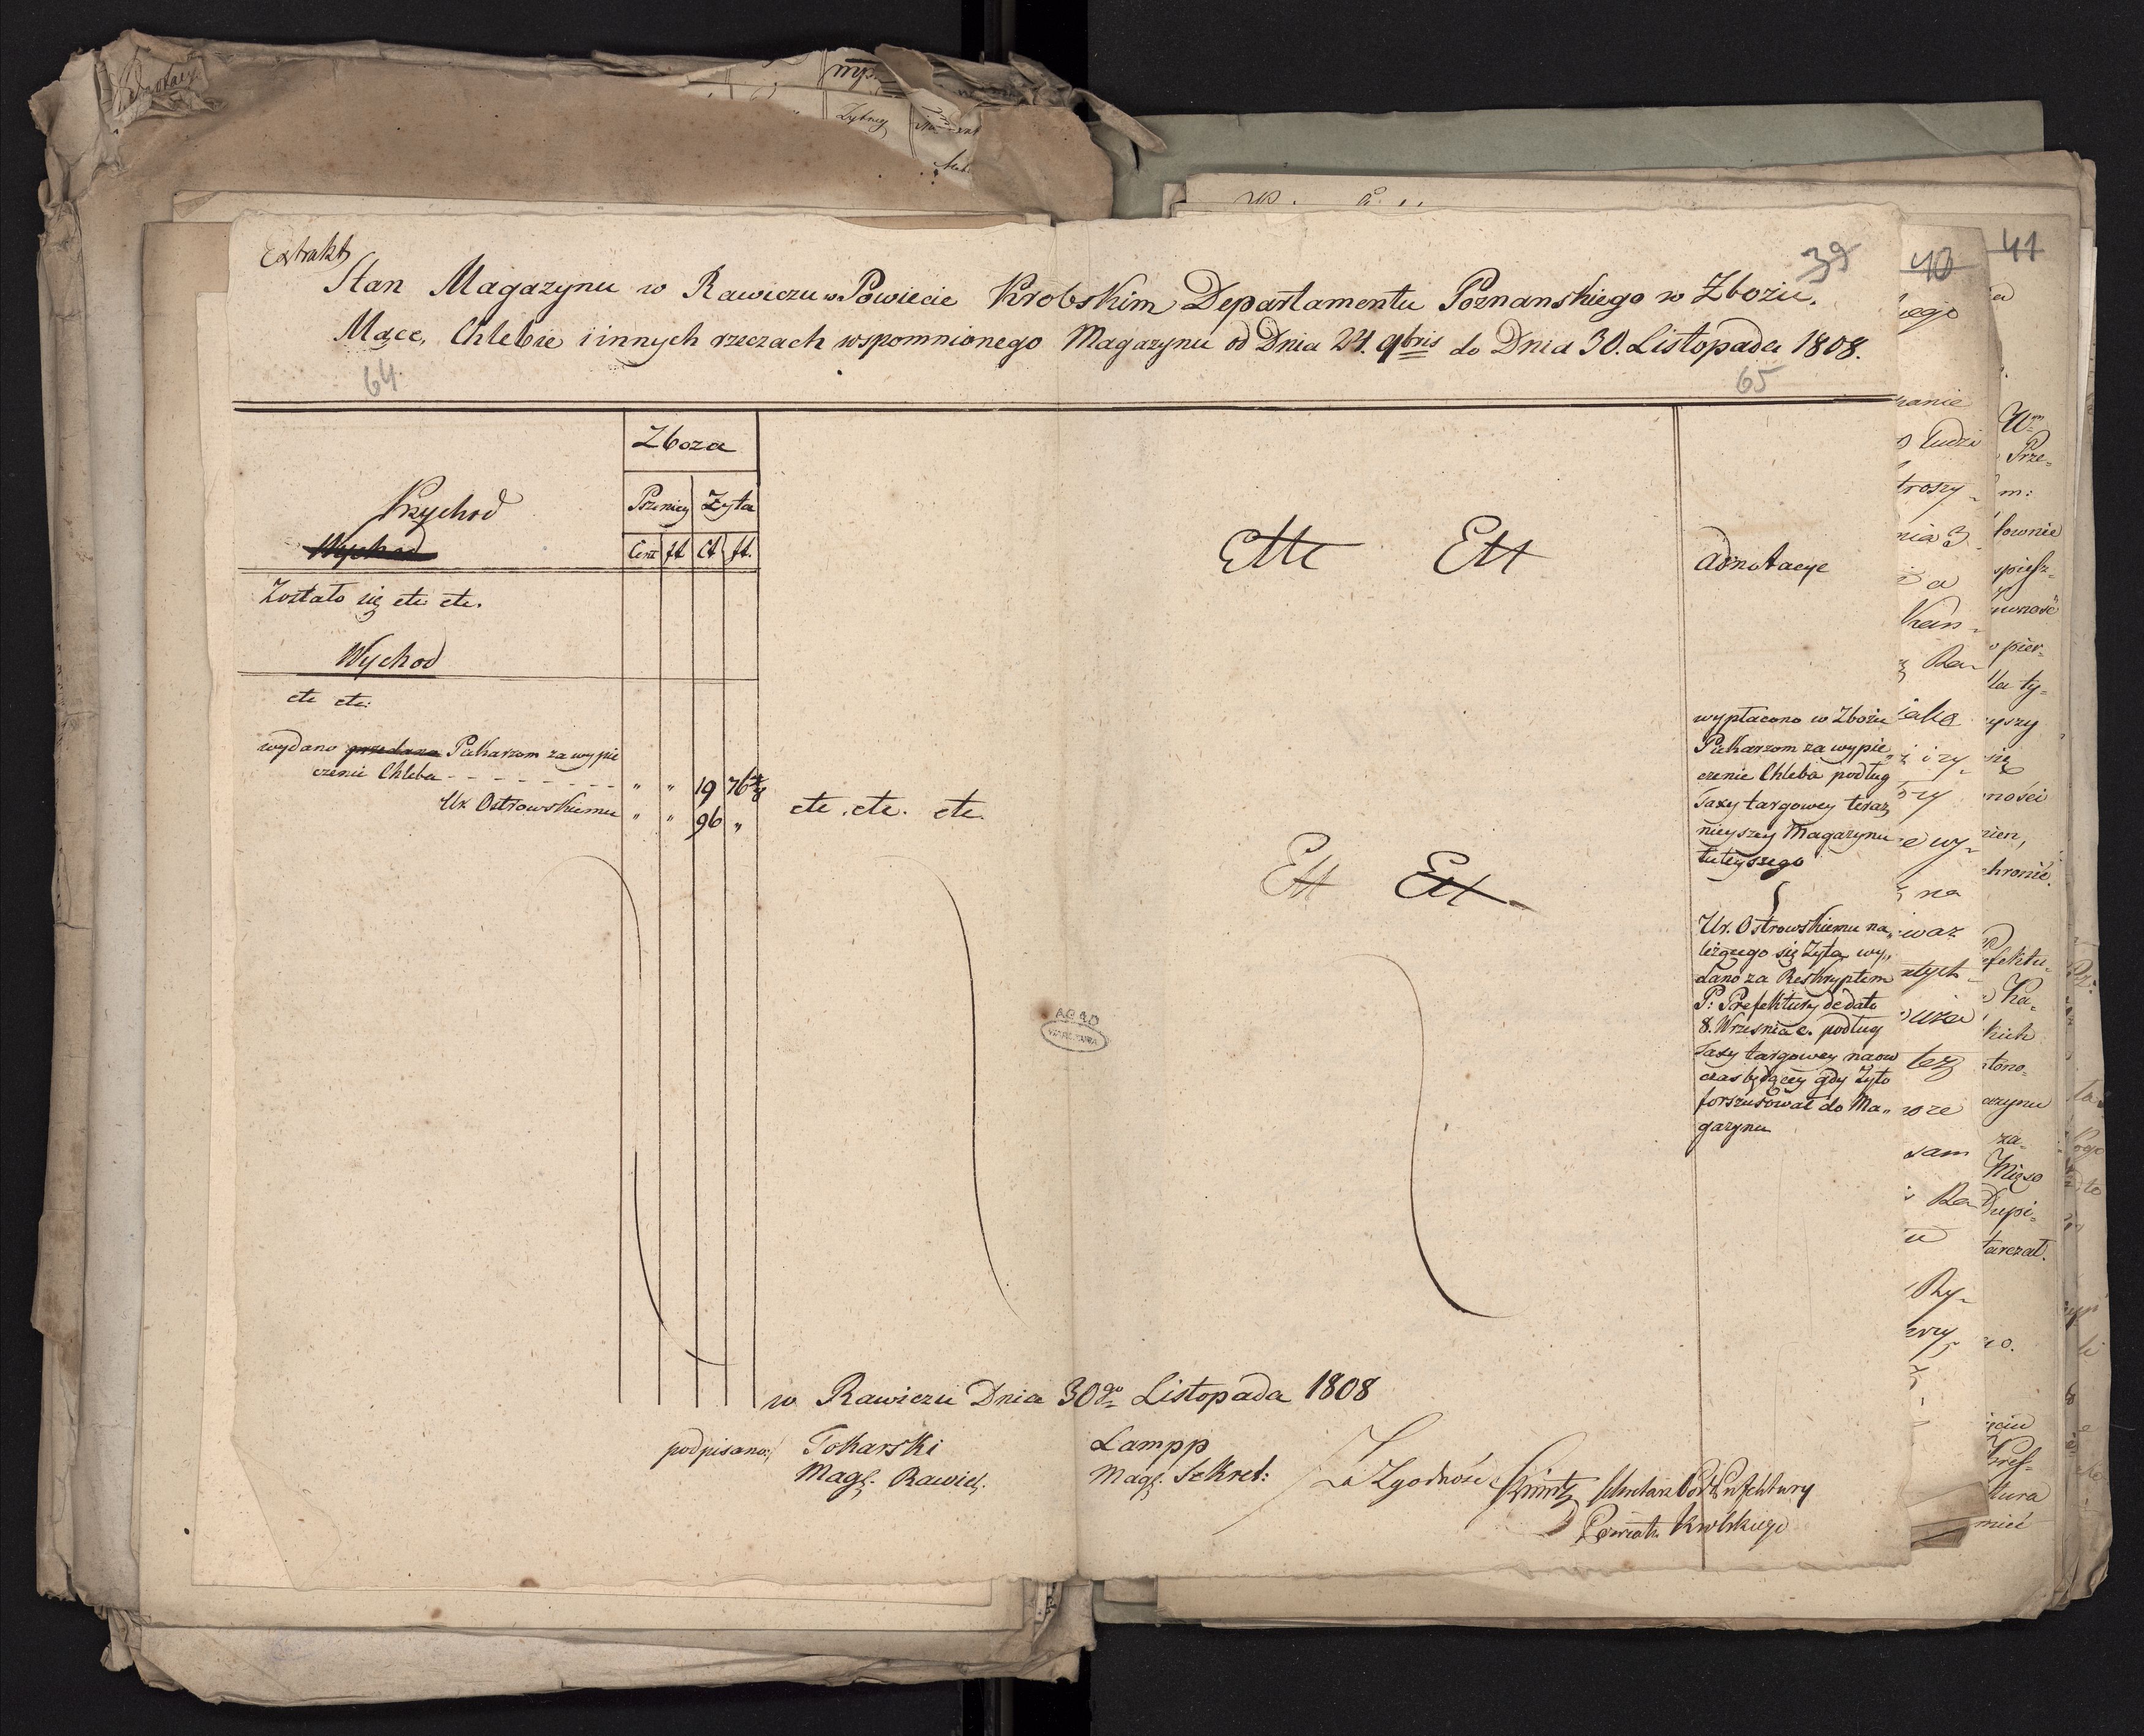 Extrakt
39
40
41
Stan Magazynu w Rawiczu w Powiecie Krobskim Departamentu Poznanskiego w Zbożu,
Mące, Chlebie i innych rzeczach wspomnionego Magazynu od Dnia 24. 9bris do Dnia 30. Listopada 1808.
64
65
Zboza
Przychod
Pszenicy Zyta
Wychod
Cent ft Ct ft.
Ettc Ett
Adnotacye
Zostało się etc etc.
Wychod
etc etc:
wydano przedano Piekarzom za wypie
czenie Chleba - - - - - - " " 19 76 4/8
Ur. Ostrowskiemu " " 96 "
etc. etc. etc.
Ett Ett
wypłacono w Zbożu
Piekarzom za wypie„
czenie Chleba podług
Taxy targowey teraz„
nieyszey Magazynu
tuteyszego
Ur. Ostrowskiemu na„
leżącego się Zyta wy„
dano za Reskryptem
P: Prefektury de dato
8. Września c. podług
Taxy targowey naow
czas będącey gdy Zyto
forszusował do Ma„
gazynu
AGAD
WARSZAWA
w Rawiczu Dnia 30go Listopada 1808
podpisano:/ Tokarski
Mag. Rawic.
Lampp
Mag. Sekret:
Za Zgodność
Sekretarz Pod Prefektury
Powiatu Krobskiego